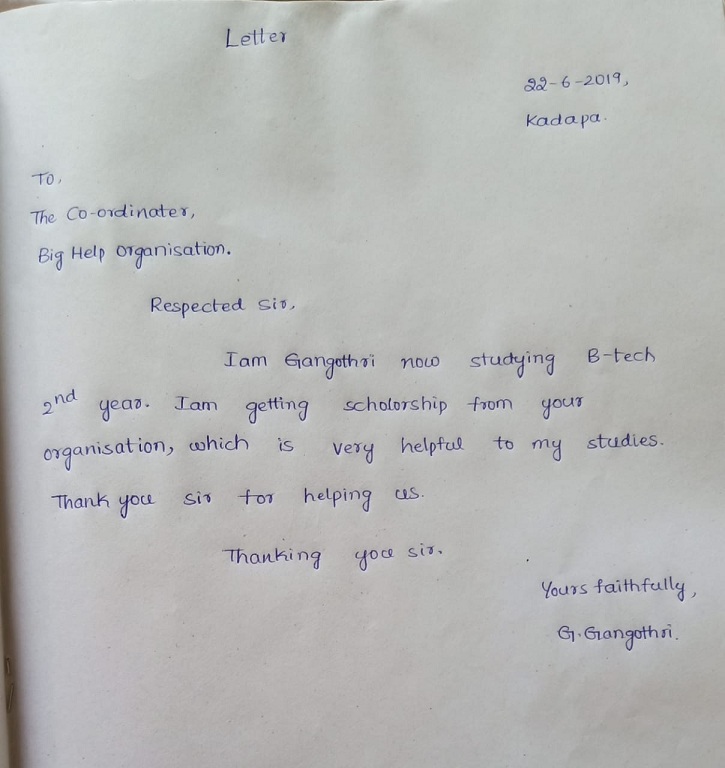 Letter
22-6-2019,
Kadapa.
To,
The Co-ordinater,
Big Help Organisation.
Respected Sir,
Iam Gangothri now studying B-tech
2nd year. Iam getting scholorship from your
organisation, which is very helpful to my studies.
Thank you sir for helping us.
Thanking you sir.
Yours faithfully,
G. Gangothri.